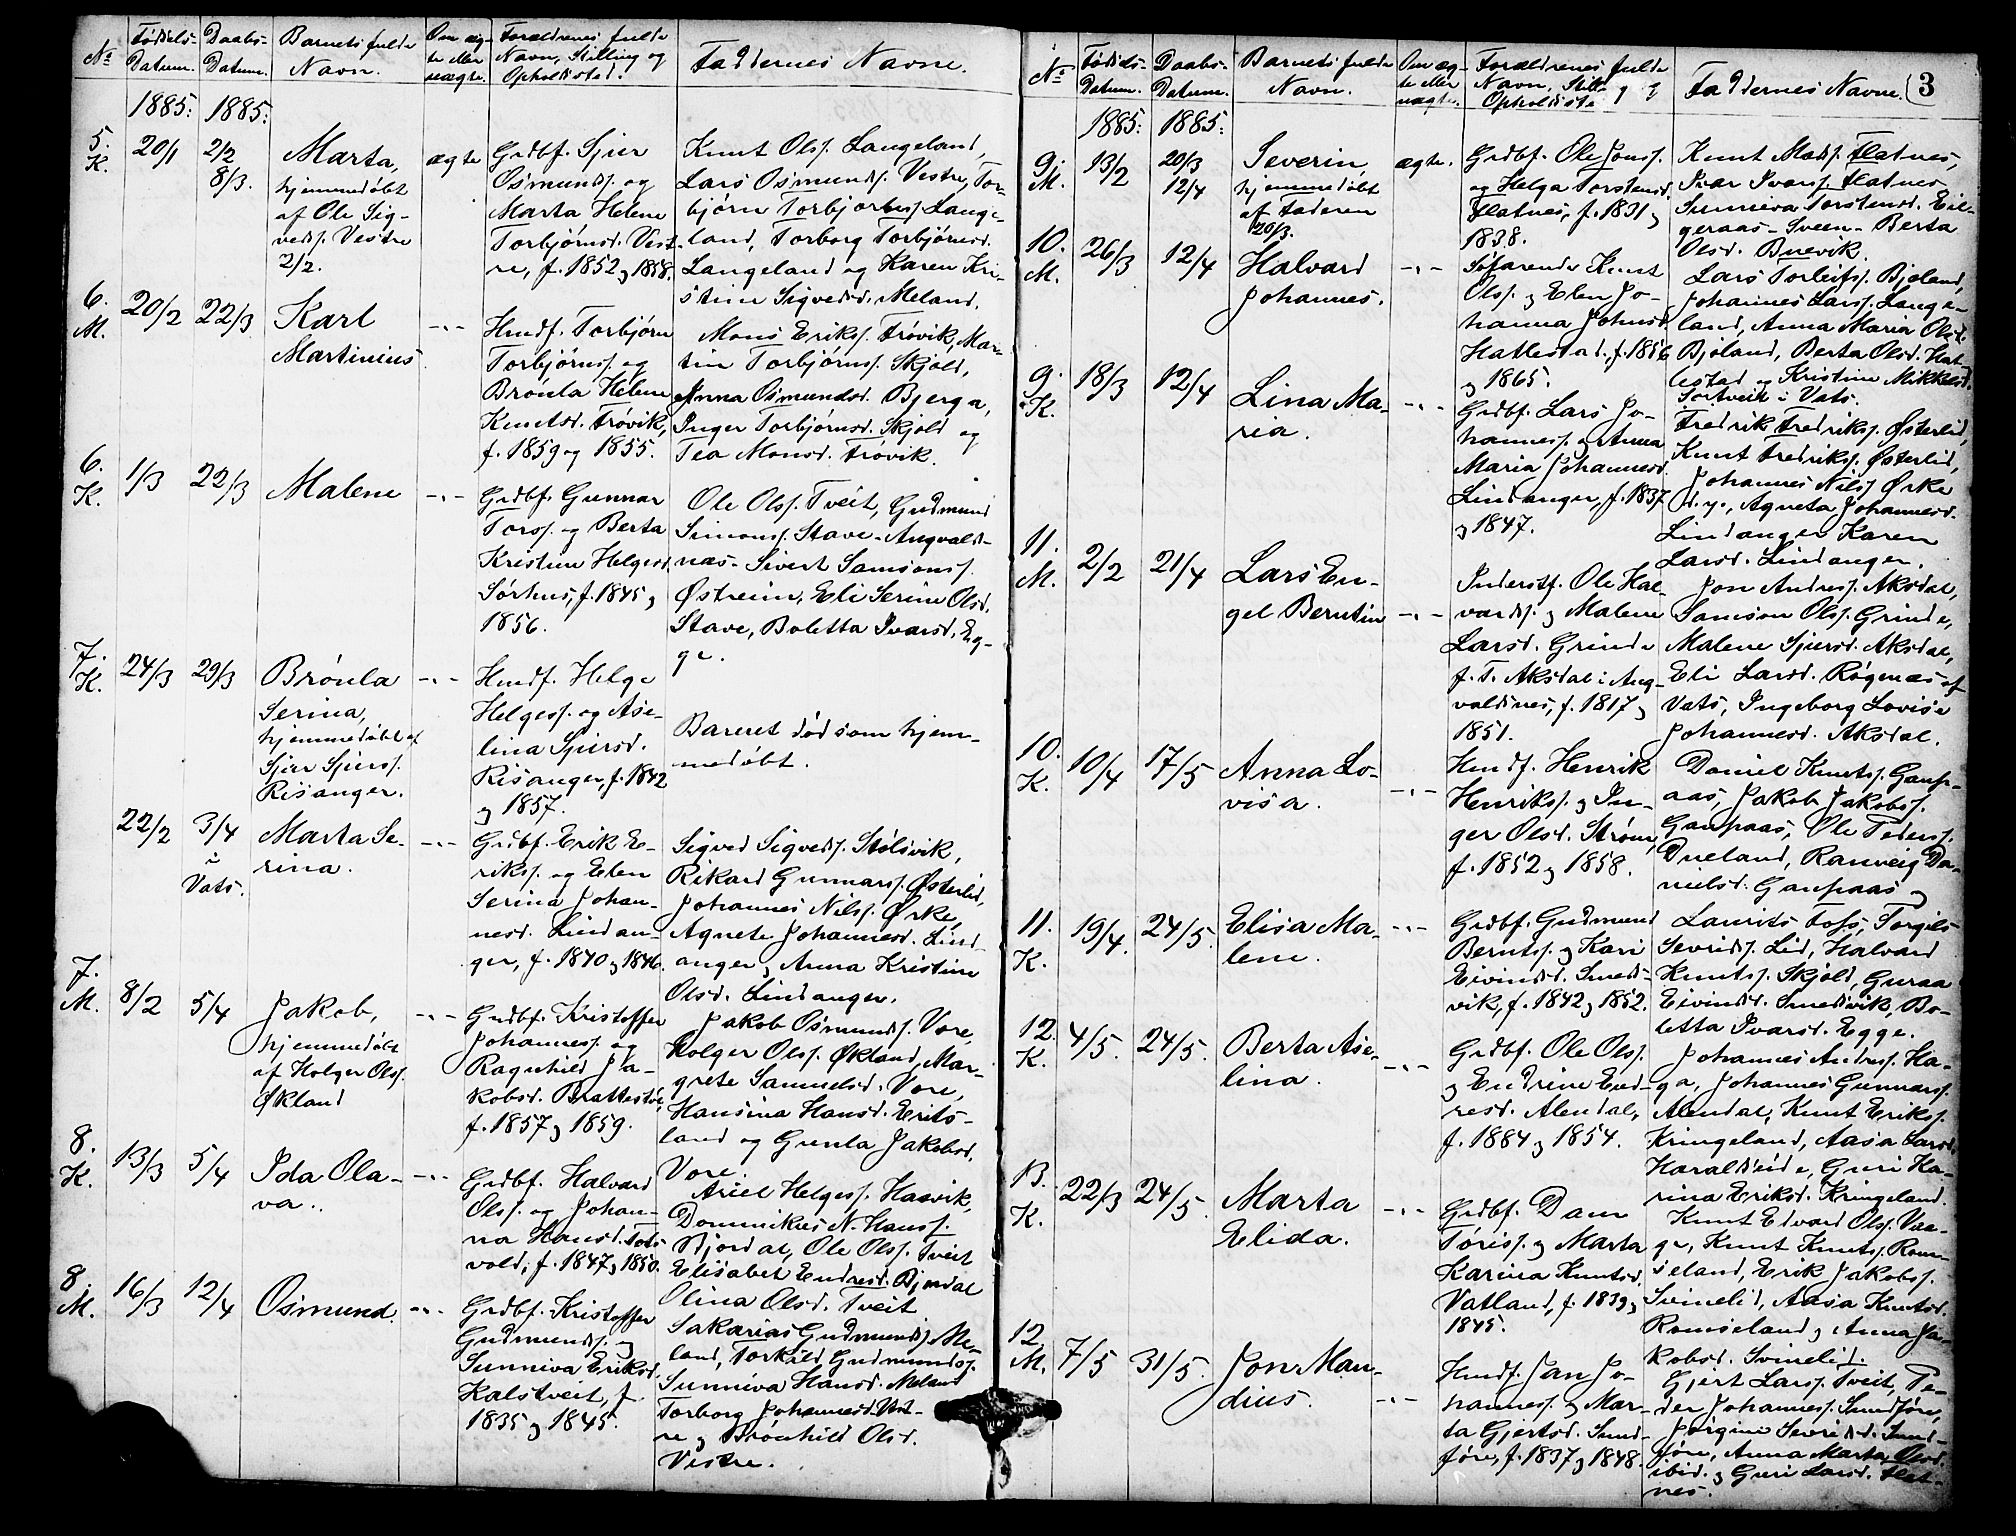 No
Fødsels-
Datum.
Daabs-
Datum.
Barnets fulde
Navn.
Om æg-
te eller
uægte.
Forældrenes fulde
Navn, Stilling og
Opholdssted.
Faddernes Navne.
1885. 1885.
5.
K.
20/1
2/2
8/3.
Marta,
hjemmedøbt
af Ole Sig-
veds. Vestre
2/2.
ægte
Grdbf. Sjur
Osmunds. og
Marta Helene
Torbjørnsd. Vest-
re, f. 1852 og 1858.
Knut Ols. Langeland,
Lars Osmunds. Vestre, Tor-
bjørn Torbjørns. Lange-
land, Torborg Torbjørnsd.
Langeland og Karen Kri-
stine Sigvedsd. Meland.
6.
M.
20/2
22/3
Karl
Martinius
-"-
Husdf. Torbjørn
Torbjørns. og
Brønla Helene
Knutsd. Frøvik,
f. 1859 og 1855.
Mons Eriks. Frøvik, Mar-
tin Torbjørns. Skjold,
Anna Osmundsd. Bjerga,
Inger Torbjørnsd. Skjold og
Tea Monsd. Frøvik.
6.
K.
1/3
22/3
Malene
-"-
Grdbf. Gunnar
Tors. og Berta
Kristine Helgesd.
Sørhus, f. 1845 og
1856.
Ole Ols. Tveit, Gudmund
Simons. Stave - Augvalds-
næs - Sivert Samsons.
Østreim, Eli Serine Olsd.
Stave, Boletta Ivarsd. Eg-
ge.
7.
K.
24/3
29/3
Brønla
Serina,
hjemmedøbt af
Sjur Sjurs.
Risanger.
-"-
Husdf. Helge
Helges. og Ase-
lina Sjursd.
Risanger, f. 1842
og 1857.
Barnet død som hjem-
medøbt.
22/2
3/4
i
Vats.
Marta Se-
rina.
-"-
Grdbf. Erik E-
riks. og Elen
Serina Johan-
nesd. Lindan-
ger, f. 1840 og 1846.
Sigved Sigveds. Stølsvik,
Rikard Gunnars. Østerlid,
Johannes Nils. Ørke,
Agnete Johannesd. Lind-
anger og Anna Kristine
Olsd. Lindanger.
7.
M.
8/2
5/4
Jakob,
hjemmedøbt
af Holger Ols.
Økland
-"-
Grdbf. Kristoffer
Johannes. og
Ragnhild Ja-
kobsd. Brattestø,
f. 1857 og 1859.
Jakob Osmunds. Vore,
Holger Ols. Økland, Mar-
grete Samuelsd. Vore,
Hansina Hansd. Erits-
land og Gunla Jakobsd.
Vore.
8.
K.
13/3
5/4
Ida Ola-
va.
-"-
Grdbf. Halvard
Ols. og Johan-
na Hansd.
vold, f. 1847 og 1850.
Ariel Helges. Hasvik,
Dominikus N. Hans.
Bjordal, Ole Ols. Tveit
Elisabet Endresd. Bjordal
Olina Olsd. Tveit
8.
M.
16/3
12/4
Osmund.
-"-
Grdbf. Kristoffer
Gudmunds. og
Sunniva Eriksd.
Kalstveit, f.
1835 og 1845.
Sakarias Gudmunds. Me-
land, Torkild Gudmunds.
Sunniva Hansd. Meland
Torborg Johannesd. Vest-
re og Brønhild Olsd.
Vestre.
No
Fødsels-
Datum.
Daabs-
Datum.
Barnets fulde
Navn.
Om æg-
te eller
uægte.
Forældrenes fulde
Navn, Stilling og
Opholdssted
Faddernes Navne.
3
1885. 1885.
9.
M.
13/2
20/3
12/4
Severin,
hjemmedøbt
af Faderen
20/3.
ægte.
Grdbf. Ole Jons.
og Helga Torstensd.
Flatnes, f. 1831 og
1838.
Knut Mads. Flatnes,
Ivar Ivars. Flatnes
Sunniva Torstensd. Eil-
geraas - Sveen - Berta
Olsd. Buevik.
10.
M.
26/3
12/4
Halvard
Johannes.
-"-
Søfarende Knut
Ols. og Elen Jo-
hanna Johnsd.
Hattestad, f. 1856
og 1865.
Lars Torleifs. Bjoland,
Johannes Lars. Lange-
land, Anna Maria Olsd.
Bjoland, Berta Olsd. Hat-
lestad og Kristine Mikkelsd.
Sørtveit i Vats.
9.
K.
18/3
12/4
Lina Ma-
ria.
-"-
Grdbf. Lars Jo-
hannes. og Anna
Maria Johannesd.
Lindanger, f. 1837
og 1847.
Fredrik Fredriks. Østerlid,
Knut Fredriks. Østerlid,
Johannes Nils. Ørke
d. y., Agneta Johannesd.
Lindanger Karen
Larsd. Lindanger.
11.
M.
2/2
21/4
Lars En-
gel Berntin
-"-
Inderstf. Ole Hal-
vards. og Malene
Larsd. Grinde
f. T. Aksdal i Aug-
valdsnes, f. 1817 og
1851.
Jon Andres. Aksdal,
Samson Ols. Grinde,
Malene Sjursd. Aksdal,
Eli Larsd. Røgenæs af
Vats, Ingeborg Lovise
Johannesd. Aksdal.
10.
K.
10/4
17/5
Anna Lo-
visa.
-"-
Husdf. Henrik
Henriks. og In-
ger Olsd. Strøm,
f. 1852 og 1858.
Daniel Knuts. Gaup-
aas, Jakob Jakobs.
Gaupaas, Ole Peders.
Dueland, Ranveig Da-
nielsd. Gaupaas og
11.
K.
19/4.
24/5.
Elisa Ma-
lene.
-"-
Grdbf. Gudmund
Bernts. og Kari
Eivindsd. Smeds-
vik, f. 1842 og 1852.
Laurits Foss, Torgils
Sevrids. Lid, Halvard
Knuts. Skjold, Guraa
Eivindsd. Smedsvik, Bo-
letta Ivarsd. Egge.
12.
K.
4/5.
24/5.
Berta Ase-
lina.
-"-
Grdbf. Ole Ols.
og Endrine End-
resd. Alendal,
f. 1884 og 1854.
Johannes Andres. Ha-
ga, Johannes Gunnars.
Alendal, Knut Eriks.
Kringeland, Aasa Larsd.
Haraldseide, Guri Ka-
rina Eriksd. Kringeland.
13.
K.
22/3
24/5.
Marta
Elida.
-"-
Grdbf. Dam
Tøris. og Marta
Karina Knutsd.
Vatland, f. 1839 og
1845.
Knut Edvard Ols. Vae-
ge, Knut Knuts. Rom-
seland, Erik Jakobs.
Svinelid, Aasa Knutsd.
Romseland og Anna Ja-
kobsd. Svinelid.
12.
M.
7/5
31/5.
Jon Man-
dius.
-"-
Husdf. Jan Jo-
hannes. og Mar-
ta Gjertsd. Sund-
føre, f. 1837 og 1848.
Gjert Lars. Tveit, Pe-
der Johannes. Sundføre,
Jørgine Sevridsd. Sund-
føre, Anna Marta Olsd.
ibid. og Guri Larsd. Flat-
nes.